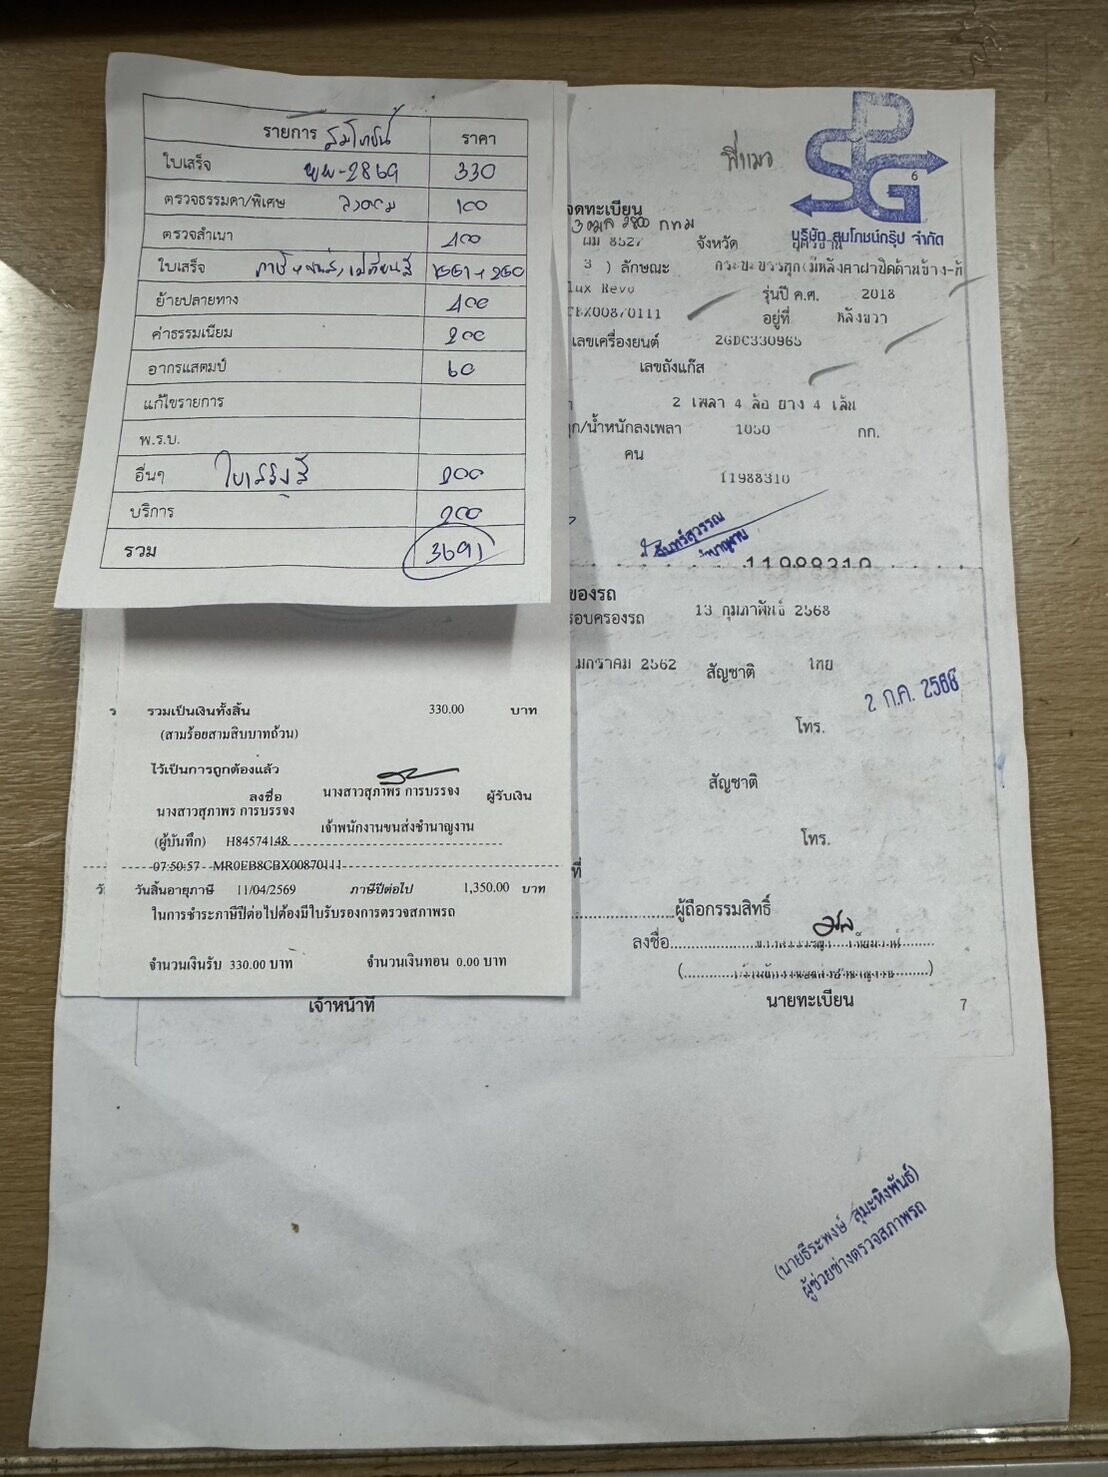 รายการ สมโภชน์ ราคา
ใบเสร็จ 330
ตรวจธรรมดา/พิเศษ 100
ตรวจสำเนา
ใบเสร็จ
ย้ายปลายทาง
ค่าธรรมเนียม 200
อากรแสตมป์ 60
แก้ไขรายการ
พ.ร.บ.
อื่นๆ
บริการ 200
รวม 3691
6
บริษัท สมโภชน์กรุ๊ป จำกัด
จดทะเบียน
ผม 8527 จังหวัด
3 ) ลักษณะ กระบะบรรทุก(มีหลังคาฝาปิดด้านข้าง-ท้
lux Revo รุ่นปี ค.ศ. 2018
CBX00870111 อยู่ที่ หลังขวา
เลขเครื่องยนต์ 2GDC330965
เลขถังแก๊ส
2 เพลา 4 ล้อ ยาง 4 เส้น
ก/น้ำหนักลงเพลา 1050 กก.
คน
11988310
ของรถ
รอบครองรถ 13 กุมภาพันธ์ 2568
มกราคม 2562 สัญชาติ ไทย
2 ก.ค. 2568
โทร.
สัญชาติ
โทร.
ที่
ผู้ถือกรรมสิทธิ์
ลงชื่อ
นายทะเบียน
7
รวมเป็นเงินทั้งสิ้น 330.00 บาท
(สามร้อยสามสิบบาทถ้วน)
ไว้เป็นการถูกต้องแล้ว
ลงชื่อ นางสาวสุภาพร การบรรจง ผู้รับเงิน
นางสาวสุภาพร การบรรจง
เจ้าพนักงานขนส่งชำนาญงาน
(ผู้บันทึก) H84574148
07:50:57 MR0EB8CBX00870111
วันสิ้นอายุภาษี 11/04/2569 ภาษีปีต่อไป 1,350.00 บาท
ในการชำระภาษีปีต่อไปต้องมีใบรับรองการตรวจสภาพรถ
จำนวนเงินรับ 330.00 บาท จำนวนเงินทอน 0.00 บาท
เจ้าหน้าที่
(นายธีระพงษ์ สุมะหิงพันธ์)
ผู้ช่วยช่างตรวจสภาพรถ